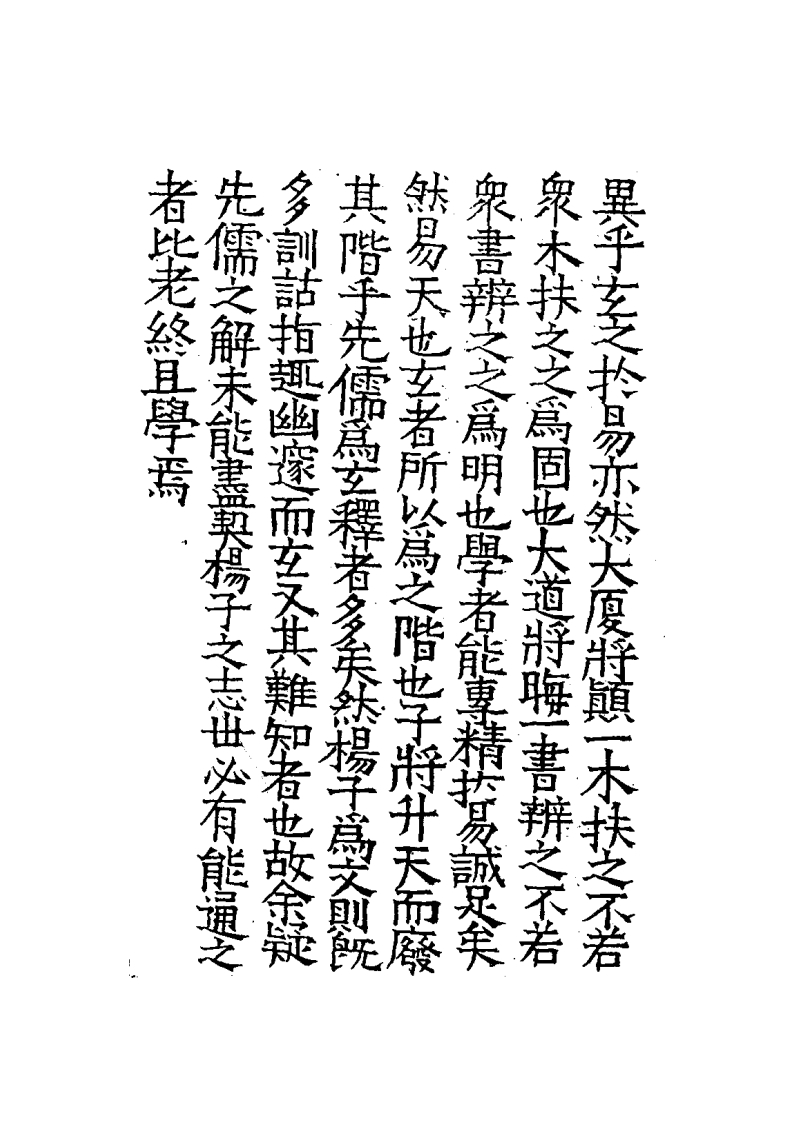 異乎玄之於易亦然大厦將顚一木扶之不若
衆木扶之之爲固也大道將晦一書辨之不若
衆書辨之之爲明也學者能專精於易誠足矣
然易天也玄者所以爲之階也子將升天而廢
其階乎先儒爲玄釋者多矣然楊子爲文則旣
多訓詁指趣幽邃而玄又其難知者也故余疑
先儒之解未能盡契楊子之志世必有能通之
者比老終且學焉